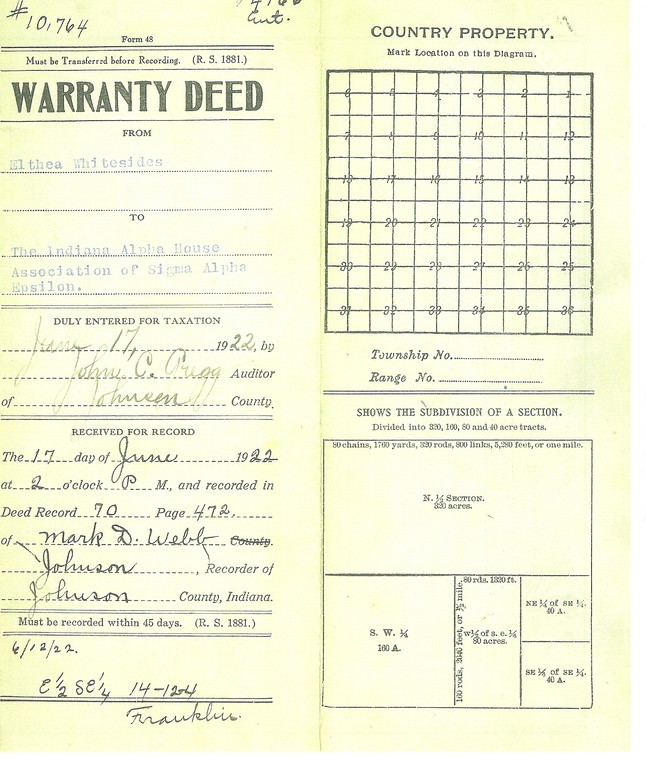 #10,764
Ent.
Form 48
Must be Transferred before Recording. (R. S. 1881.)
WARRANTY DEED
FROM
Elthea Whitesides
TO
The Indiana Alpha House
Association of Sigma Alpha
Epsilon.
DULY ENTERED FOR TAXATION
June 17, 1922, by
John C. Gregg Auditor
of Johnson County.
RECEIVED FOR RECORD
The 17 day of June 1922
at 2 o'clock P M., and recorded in
Deed Record 70 Page 472.
of Mark D. Webb County.
Johnson, Recorder of
Johnson County, Indiana.
Must be recorded within 45 days. (R. S. 1881.)
6/12/22.
E½ SE¼ 14-12-4
Franklin.
COUNTRY PROPERTY.
Mark Location on this Diagram.
6 5 4 3 2 1
7 8 9 10 11 12
18 17 16 15 14 13
19 20 21 22 23 24
30 29 28 27 26 25
31 32 33 34 35 36
Township No.
Range No.
SHOWS THE SUBDIVISION OF A SECTION.
Divided into 320, 160, 80 and 40 acre tracts.
80 chains, 1760 yards, 320 rods, 800 links, 5,280 feet, or one mile.
N. ½ SECTION.
320 acres.
S. W. ¼
160 A.
160 rods, 2640 feet, or ½ mile.
80 rds. 1320 ft.
w½ of s. e. ¼
80 acres.
NE ¼ of SE ¼.
40 A.
SE ¼ of SE ¼.
40 A.